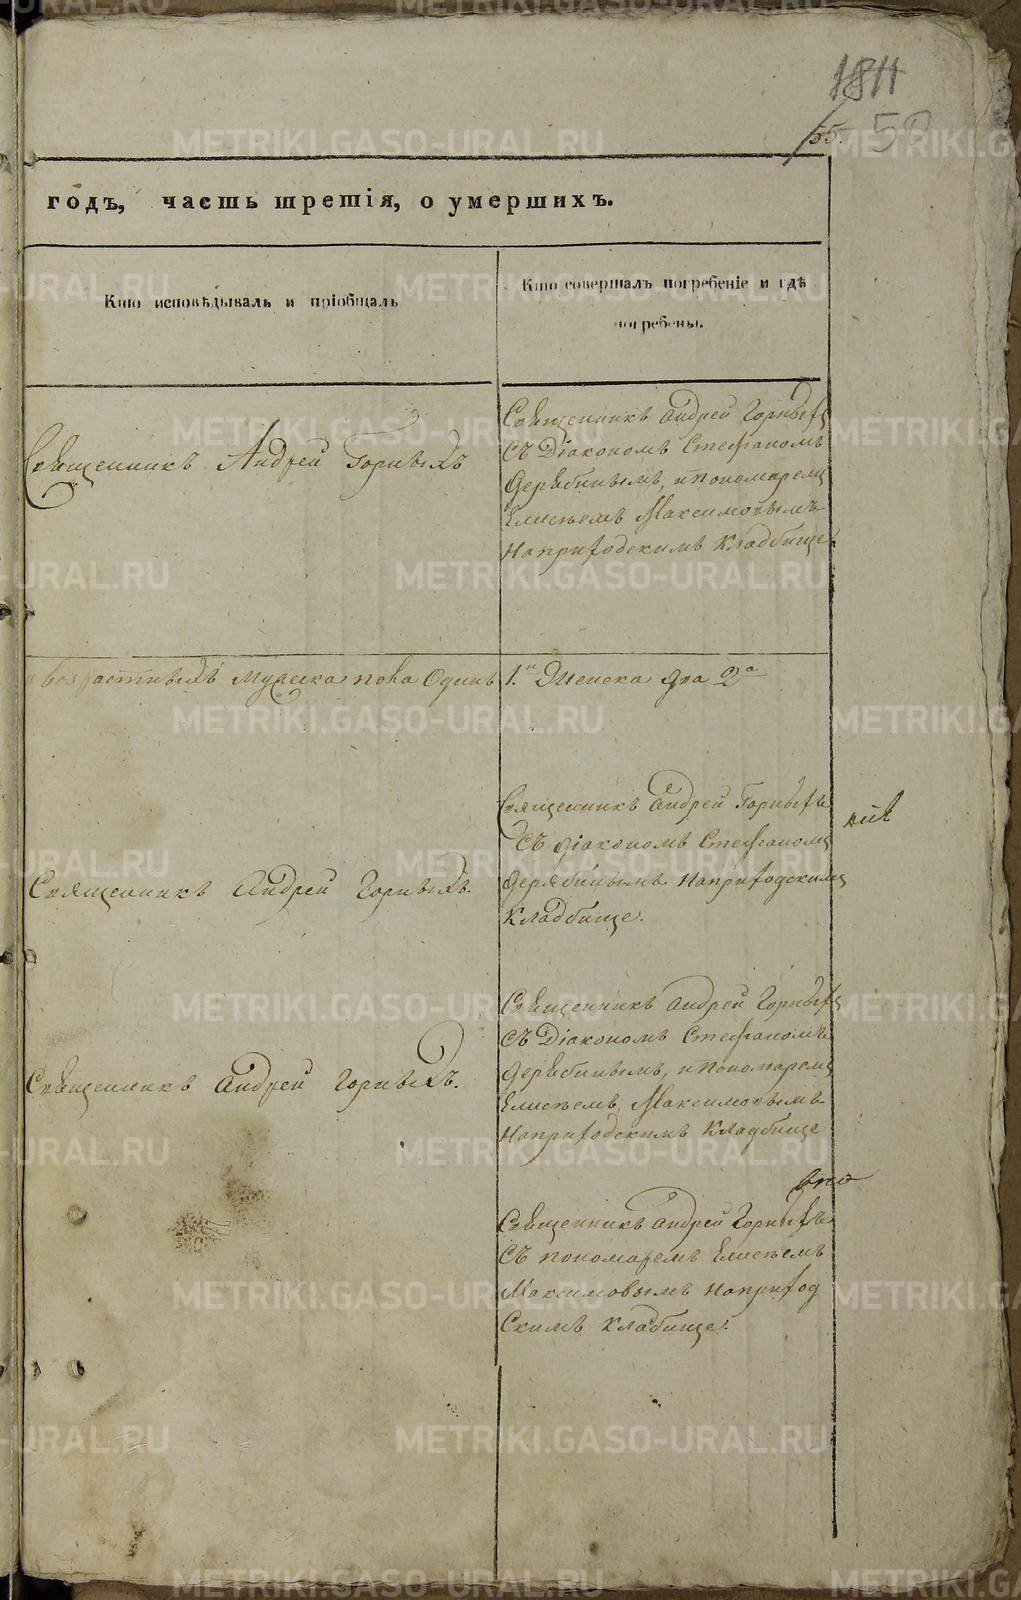 1811
55. 50
годъ, часть третія, о умершихъ.
Кто исповѣдывалъ и пріобщалъ
Кто совершалъ погребеніе и гдѣ
погребены.
Священникъ Андрей Горныхъ
Священникъ Андрей Горныхъ
съ Діакономъ Стефаномъ
Дерябинымъ, и Пономаремъ
Елисѣемъ Максимовымъ
На приходскимъ Кладбище.
возрастныхъ мужеска пола Одинъ 1. Женска два 2а
Священникъ Андрей Горныхъ.
Священникъ Андрей Горныхъ
съ діакономъ Стефаномъ
Дерябинымъ На приходскимъ
Кладбище.
Священникъ Андрей Горныхъ.
Священникъ Андрей Горныхъ
съ Діакономъ Стефаномъ
Дерябинымъ, и Пономаремъ
Елисѣемъ Максимовымъ
На приходскимъ Кладбище
Священникъ Андрей Горныхъ
съ пономаремъ Елисѣемъ
Максимовымъ на приход
скимъ кладбище.
METRIKI.GASO-URAL.RU